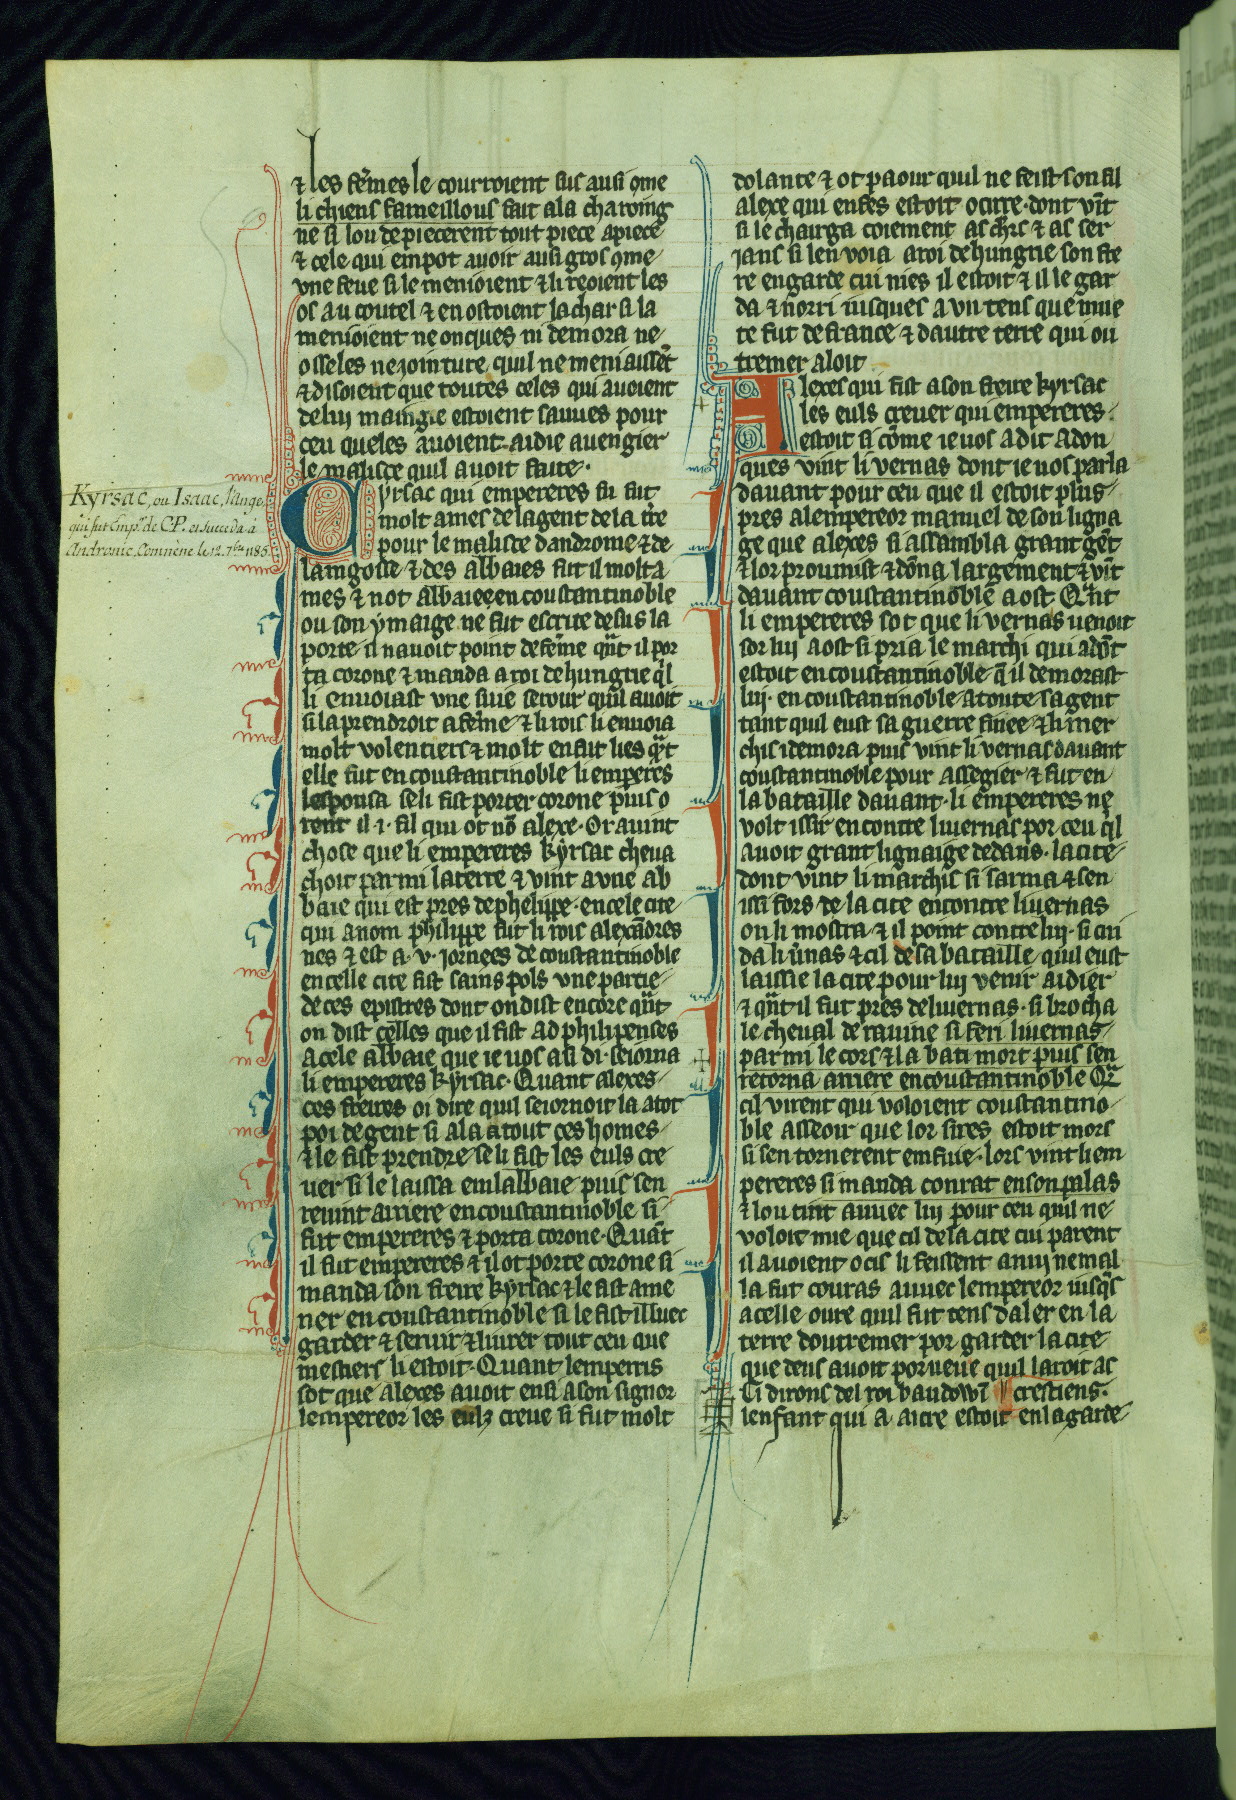 ⁊ les fem̃es le courroient sus ausi ꝯme
li chiens fameillous fait a la charoing
ne si lou depiecerent tout piece a piece
⁊ cele qui em pot avoir ausi gros ꝯme
vne feue si le menioient ⁊ li reoient les
os au coutel ⁊ en ostoient la char si la
menioient ne onques ni demora ne
osseles ne jointure quil ne meniaissẽt
⁊ disoient que toutes celes qui auoient
de lui maingie estoient sauues pour
ceu queles auoient aidie a uengier
le malisce quil auoit faite.
Kyrsac, ou Isaac, l'ange,
qui fut Emp.r de C.P. et succeda à
Andronic Comnène le 12. 7.bre 1185.
Cyrsac qui empereres fu fut
molt ames de la gent de la t̃re
pour le malisce dandrome ⁊ de
laingosse ⁊ des abbaies fut il molt a
mes ⁊ not abbaie en coustantinoble
ou son ymaige ne fut escrite desus la
porte il nauoit point de fem̃e qñt il por
ta corone ⁊ manda a roi de hungrie q̃l
li enuoiast vne siue serour quil auoit
si la prendroit a fem̃e ⁊ li rois li enuoia
molt volentiers ⁊ molt en fut lies qñt
elle fut en coustantinoble li emperes
lesponsa se li fist porter corone puis o
rent il .i. fil qui ot nõ alexe. Or auint
chose que li empereres kyrsac cheua
choit parmi la terre ⁊ vint a vne ab
baie qui est pres de phelippe. en cele cite
qui a nom phelippe fut li rois alexãdres
nes ⁊ est a .v. jornees de coustantinoble
en celle cite fist sains pols vne partie
de ces epistres dont on dist encore qñt
on dist celles que il fist ad philipenses
a cele abbaie que ie uos asi di seiorna
li empereres kyrsac. Quant alexes
ces freires oi dire quil seiornoit la a tot
poi de gent si ala a tout ces homes
⁊ le fist prendre se li fist les euls cre
uer si le laissa en labbaie puis sen
reuint arriere en coustantinoble si
fut empereres ⁊ porta corone. Quãt
il fut empereres ⁊ il ot porte corone si
manda son freire kyrsac ⁊ le fist ame
ner en coustantinoble si le fist illuec
garder ⁊ seruir ⁊ liurer tout ceu que
mestiers li estoit. Quant lemperris
sot que alexes auoit ensi a son signor
lempereor les eulz creue si fut molt
dolante ⁊ ot paour quil ne feist son fil
alexe qui enfes estoit ocirre. dont vĩt
si le chairga coiement as chrs ⁊ as ser
jans si len voia a roi de hungrie son fre
re en garde cui nies il estoit ⁊ il le gar
da ⁊ norri iusques a vn tens que mue
te fut de france ⁊ dautre terre qui ou
tremer aloit
Alexes qui fist a son freire kyrsac
les euls creuer qui empereres
estoit si cõme ie uos a dit adon
ques vint li vernas dont ie uos parla
dauant pour ceu que il estoit plus
pres a lempereor manuel de son ligna
ge que alexes si assambla grant gẽt
⁊ lor proumist ⁊ dõna largement ⁊ vĩt
dauant coustantinoble a ost. Qñt
li empereres sot que li vernas uenoit
sor lui a ost si pria le marchi qui adõt
estoit en coustantinoble q̃ il demorast
lui. en coustantinoble a toute sa gent
tant quil eust sa guerre finee ⁊ li mer
chis i demora puis vint li vernas dauant
coustantinoble pour assegier ⁊ fut en
la bataille dauant. li empereres ne
volt issir encontre liuernas por ceu q̃l
auoit grant lignaige dedans. la cite
dont vint li marchis si sarma ⁊ sen
issi fors de la cite encontre liuernas
on li mostra ⁊ il point contre lui. si cui
da li ũnas ⁊ cil de sa bataille quil eust
laissie la cite pour lui venir aidier
⁊ qñt il fut pres deliuernas. si brocha
le cheual de rauine si feri liuernas
parmi le cors ⁊ la bati mort puis sen
retorna arriere en coustantinoble Qñt
cil virent qui voloient coustantino
ble asseoir que lor sires estoit mors
si sen tornerent em fiue. lors vint li em
pereres si manda conrat en son palas
⁊ lou tint auuec lui pour ceu quil ne
voloit mie que cil de la cite cui parent
il auoient ocis li feissent anui ne mal
la fut couras auuec lempereor iusq̃s
a celle oure quil fut tens daler en la
terre doutremer por garder la cite
que deus auoit porueue quil lairoit as
Ci dirons del roi baudowĩ ¶ crestiens.
lenfant qui a aicre estoit en la garde